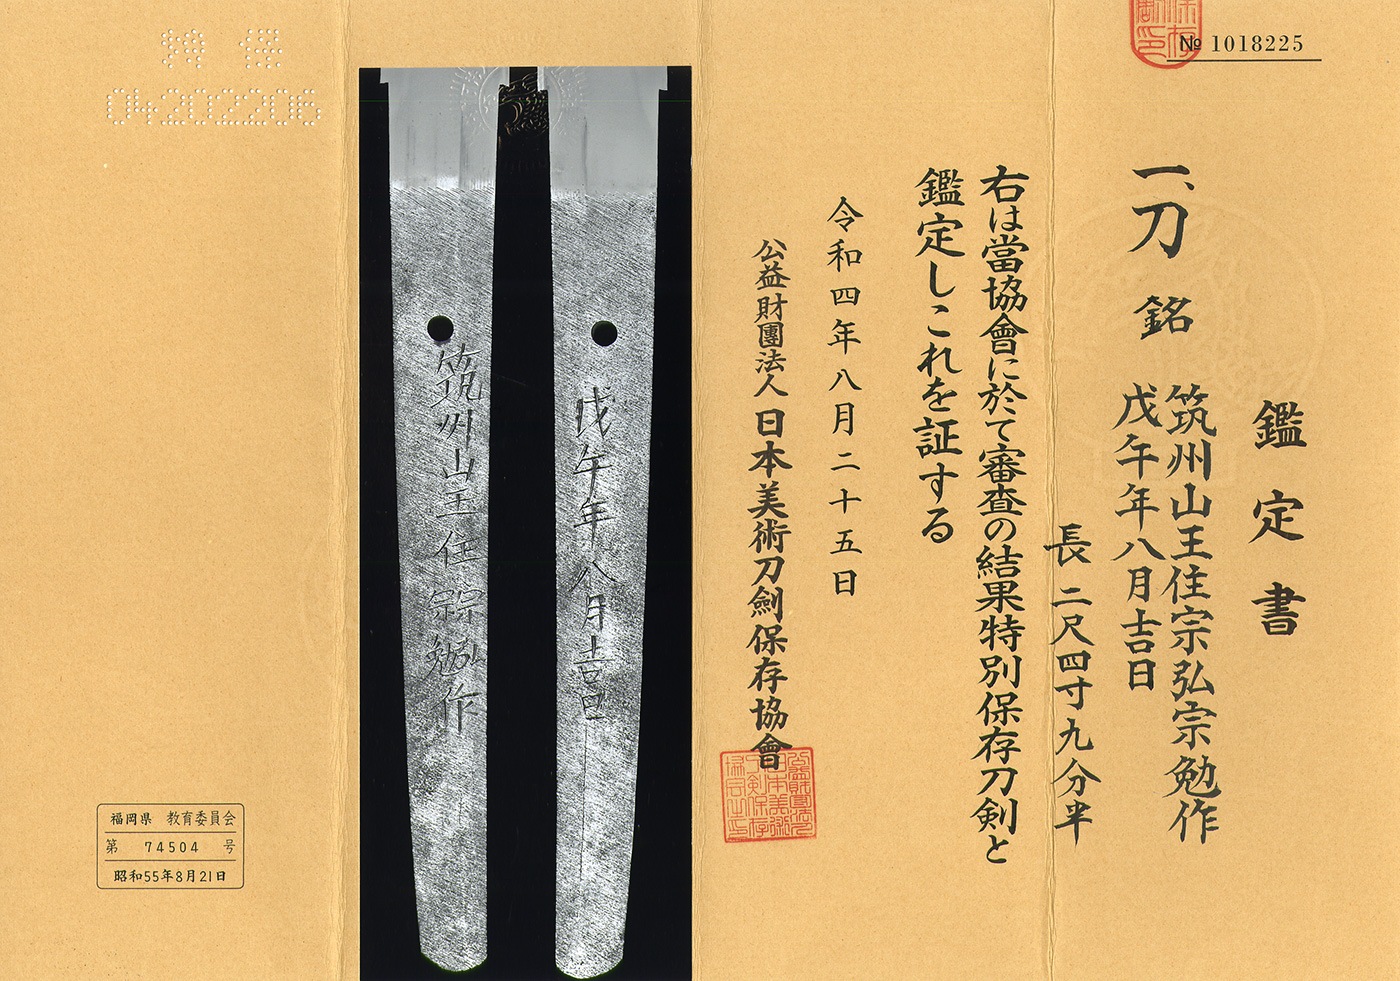 № 1018225
鑑定書
一、刀 銘 筑州山王住宗弘宗勉作
戊午年八月吉日
長 二尺四寸九分半
右は當協會に於て審査の結果特別保存刀剣と
鑑定しこれを証する
令和四年八月二十五日
公益財團法人 日本美術刀劍保存協會
戊午年八月吉日
筑州山王住宗弘
宗勉作
特 保
04202206
福岡県 教育委員会
第 74504 号
昭和55年8月21日